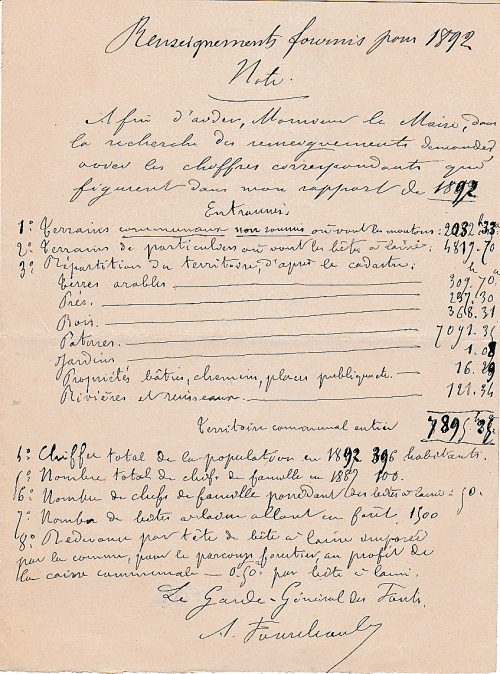 Renseignements fournis pour 1892
Note.
Afin d'aider, Monsieur le Maire, dans
la recherche des renseignements demandés
voici les chiffres correspondants qui
figurent dans mon rapport de 1892
Entraunes
1° Terrains communaux non soumis où vont les moutons : 2032h 33a
2° Terrains de particuliers où vont les bêtes à laine : 4819.70
3° Répartition du territoire, d'après le cadastre :
Terres arables 309.70
Prés. 297.30
Bois. 368.31
Patures. 7091.35
Jardins 1.08
Propriétés bâties, chemins, places publiques etc. 16.29
Rivières et ruisseaux. 121.34
Territoire communal entier 7895
Chiffre total de la population en 1892 396 habitants.
Nombre total de chefs de famille en 1887 100.
6° Nombre de chefs de famille possédant des bêtes à laine : 50.
7° Nombre de bêtes à laine allant en forêt 1500
8° Redevance par tête de bête à laine imposée
par la commune, pour le parcours forestier, au profit de
la caisse communale — 0.50c par bête à laine.
Le Garde-Général des Forêts,
A.